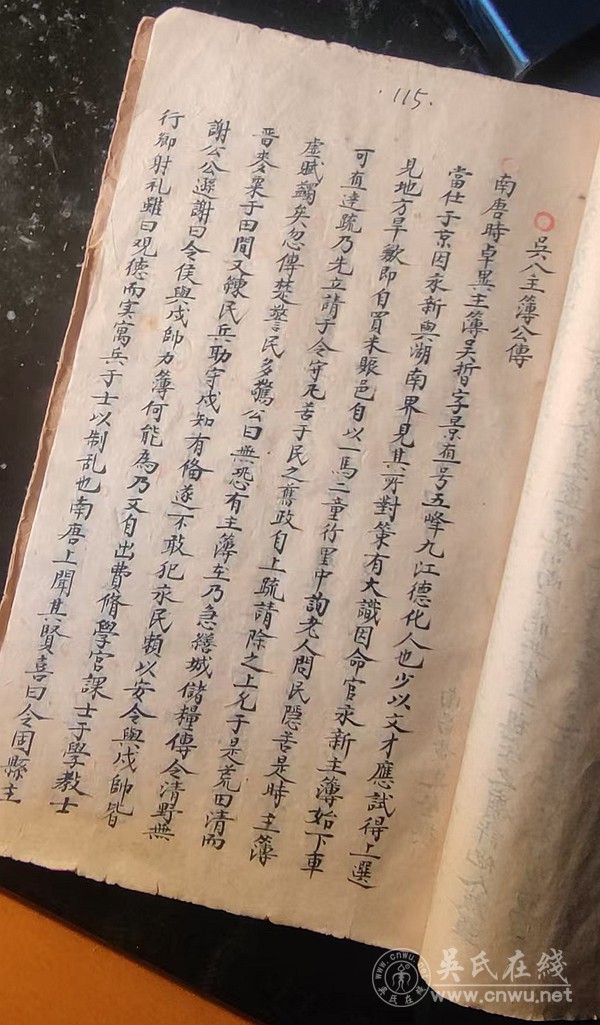 ·115·
吴公主簿公傳
南唐時卓異主簿吴哲字景直号五峰九江德化人也少以文才應試得上選
當仕于京因永新與湖南界見其所對策有大識因命官永新主簿始下車
見地方旱歉即自買米賑邑自以一馬二童行里中詢老人問民隱善是時主簿
可直達疏乃先立請于令守凡苦于民之舊政自上疏請除之上允于是荒田清而
虚賦蠲矣忽傳楚警民多驚公曰無恐有主簿在乃急繕城儲糧傳令清野無
晋麥粟于田間又練民兵助守戍知有偹遂不敢犯永民頼以安令與戍帥皆
謝公公遜謝曰令侯與戍帥力簿何能為乃又自出費脩學宫課士于學教士
行鄉射礼雖曰观德而实寓兵于士以制乱也南唐上聞其賢喜曰令固縣主
吴氏在线
www.cnwu.net